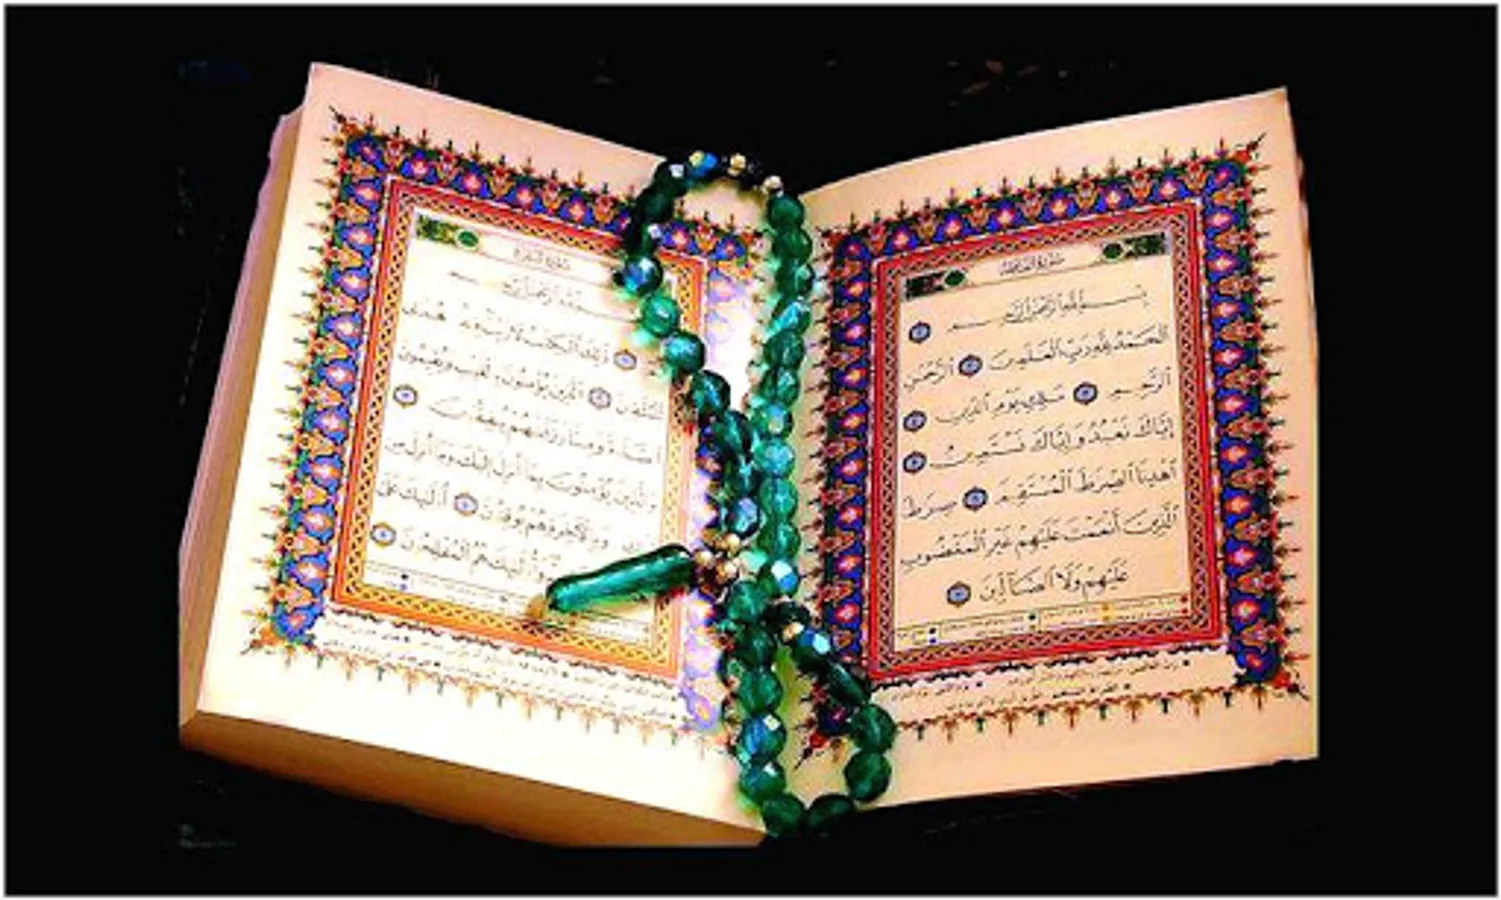 سُورَةُ الفَاتِحَة
بِسْمِ ٱللَّهِ ٱلرَّحْمَٰنِ ٱلرَّحِيمِ
ٱلْحَمْدُ لِلَّهِ رَبِّ ٱلْعَٰلَمِينَ ٱلرَّحْمَٰنِ
ٱلرَّحِيمِ مَٰلِكِ يَوْمِ ٱلدِّينِ
إِيَّاكَ نَعْبُدُ وَإِيَّاكَ نَسْتَعِينُ
ٱهْدِنَا ٱلصِّرَٰطَ ٱلْمُسْتَقِيمَ صِرَٰطَ
ٱلَّذِينَ أَنْعَمْتَ عَلَيْهِمْ غَيْرِ ٱلْمَغْضُوبِ
عَلَيْهِمْ وَلَا ٱلضَّآلِّينَ
سُورَةُ البَقَرَة
بِسْمِ ٱللَّهِ ٱلرَّحْمَٰنِ ٱلرَّحِيمِ
ذَٰلِكَ ٱلْكِتَٰبُ لَا رَيْبَ فِيهِ هُدًى
لِّلْمُتَّقِينَ ٱلَّذِينَ يُؤْمِنُونَ بِٱلْغَيْبِ وَيُقِيمُونَ
ٱلصَّلَوٰةَ وَمِمَّا رَزَقْنَٰهُمْ يُنفِقُونَ
وَٱلَّذِينَ يُؤْمِنُونَ بِمَآ أُنزِلَ إِلَيْكَ وَمَآ أُنزِلَ مِن
قَبْلِكَ وَبِٱلْءَاخِرَةِ هُمْ يُوقِنُونَ أُو۟لَٰٓئِكَ عَلَىٰ
وَأُو۟لَٰٓئِكَ هُمُ ٱلْمُفْلِحُونَ